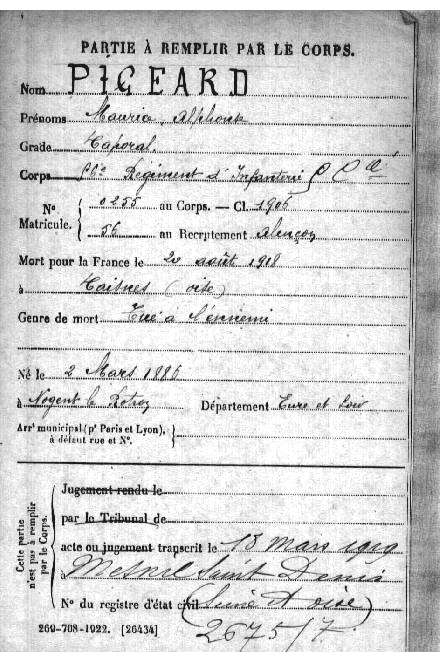 PARTIE À REMPLIR PAR LE CORPS.
Nom PIGEARD
Prénoms Maurice, Alphonse
Grade Caporal
Corps Régiment d'Infanterie
N° Matricule. { 0255 au Corps. — Cl. 1906
56 au Recrutement Alençon
Mort pour la France le 20 août 1918
à (Oise)
Genre de mort Tué à l'ennemi
Né le 2 Mars 1886
à Nogent le Rotrou Département Eure et Loir
Arrt municipal (pr Paris et Lyon), à défaut rue et N°.
Cette partie n'est pas à remplir par le Corps.
Jugement rendu le
par le Tribunal de
acte ou jugement transcrit le 18 mars 1919
Mesnil Saint Denis
N° du registre d'état civil (Seine et Oise)
2675/7
269-708-1922. [26434]